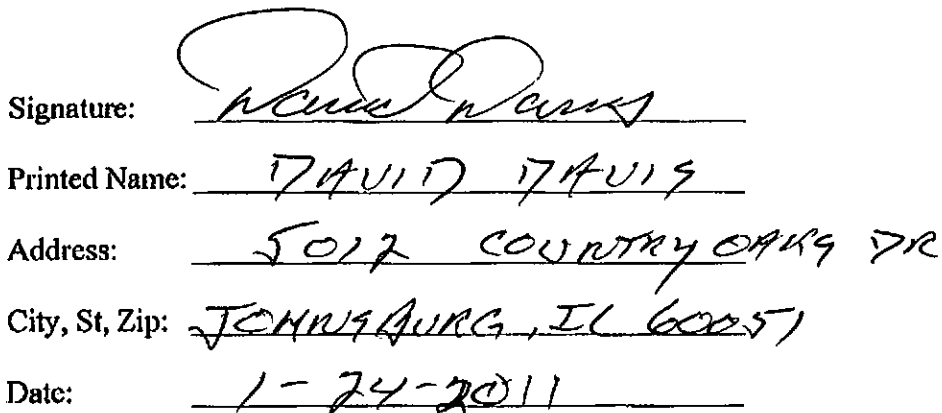 Signature: David Davis
Printed Name: DAVID DAVIS
Address: 5012 COUNTRY OAKS DR
City, St, Zip: JOHNSBURG, IL 60051
Date: 1-24-2011